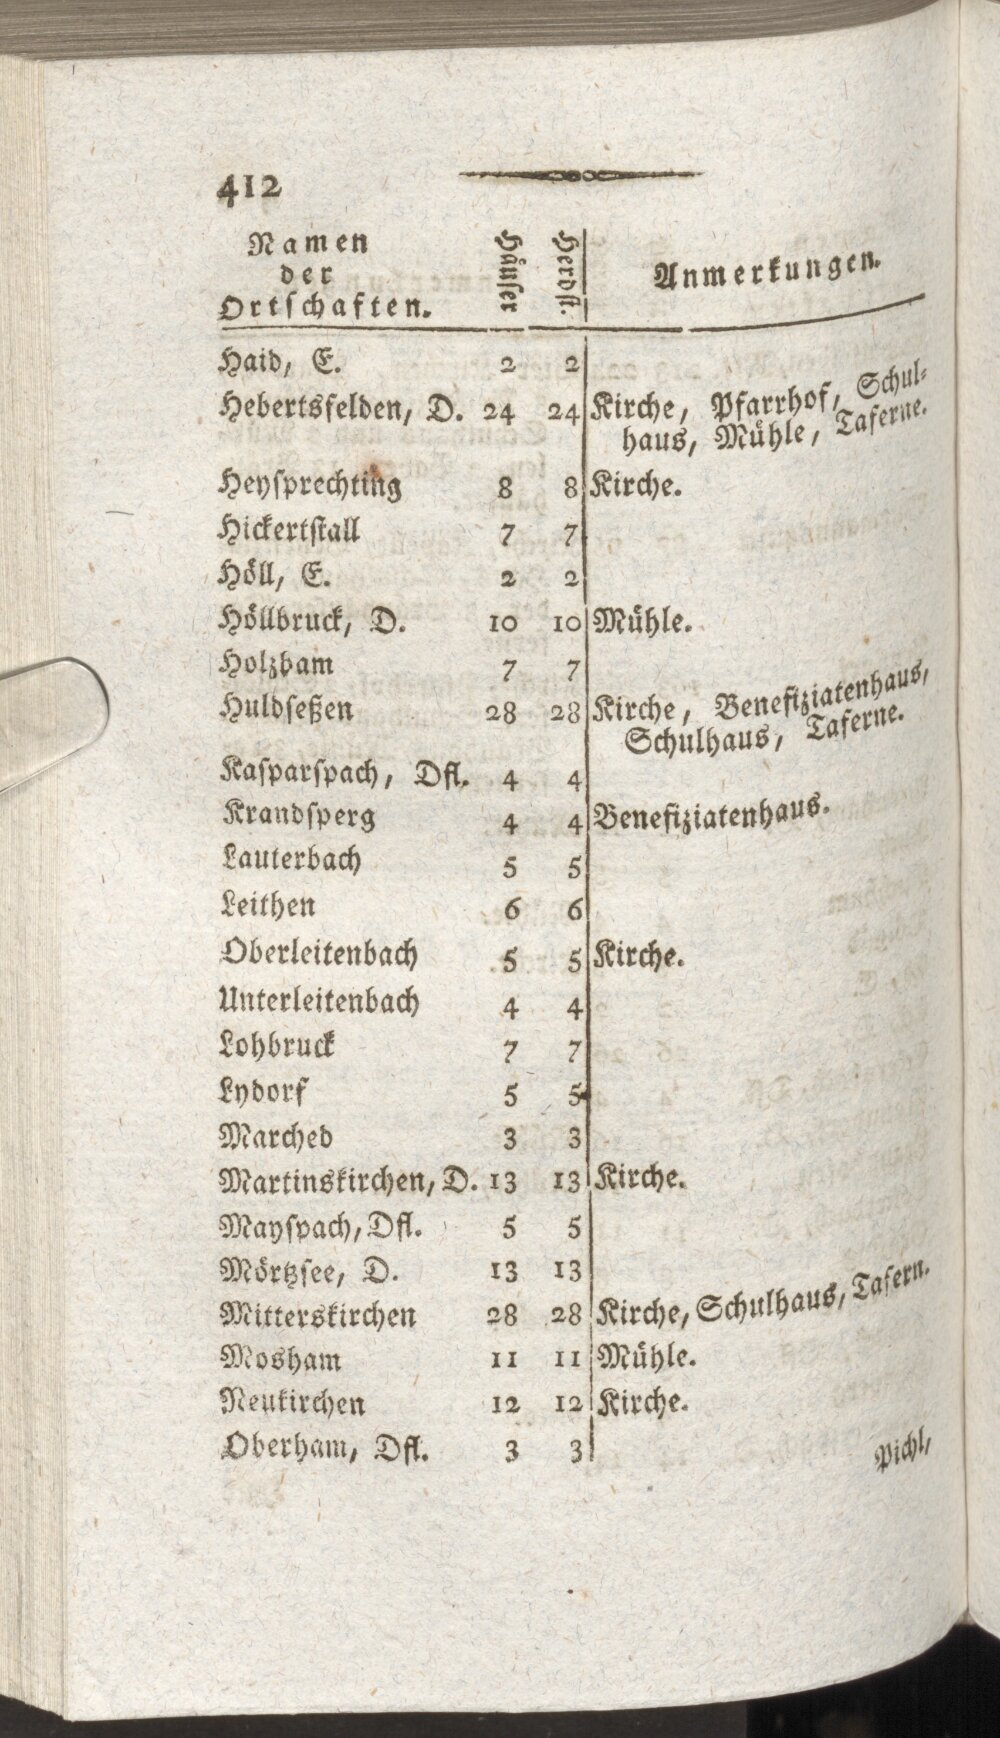 412
Namen
der
Ortschaften.
Häuser
Herdst.
Anmerkungen.
Haid, E. 2 2
Hebertsfelden, D. 24 24 Kirche, Pfarrhof, Schul-
haus, Mühle, Taferne.
Heysprechting 8 8 Kirche.
Hickertstall 7 7
Höll, E. 2 2
Höllbruck, D. 10 10 Mühle.
Holzham 7 7
Huldseßen 28 28 Kirche, Benefiziatenhaus,
Schulhaus, Taferne.
Kasparspach, Dfl. 4 4
Krandsperg 4 4 Benefiziatenhaus.
Lauterbach 5 5
Leithen 6 6
Oberleitenbach 5 5 Kirche.
Unterleitenbach 4 4
Lohbruck 7 7
Lydorf 5 5
Marched 3 3
Martinskirchen, D. 13 13 Kirche.
Mayspach, Dfl. 5 5
Mörtzsee, D. 13 13
Mitterskirchen 28 28 Kirche, Schulhaus, Tafern.
Mosham 11 11 Mühle.
Neukirchen 12 12 Kirche.
Oberham, Dfl. 3 3
Pichl,